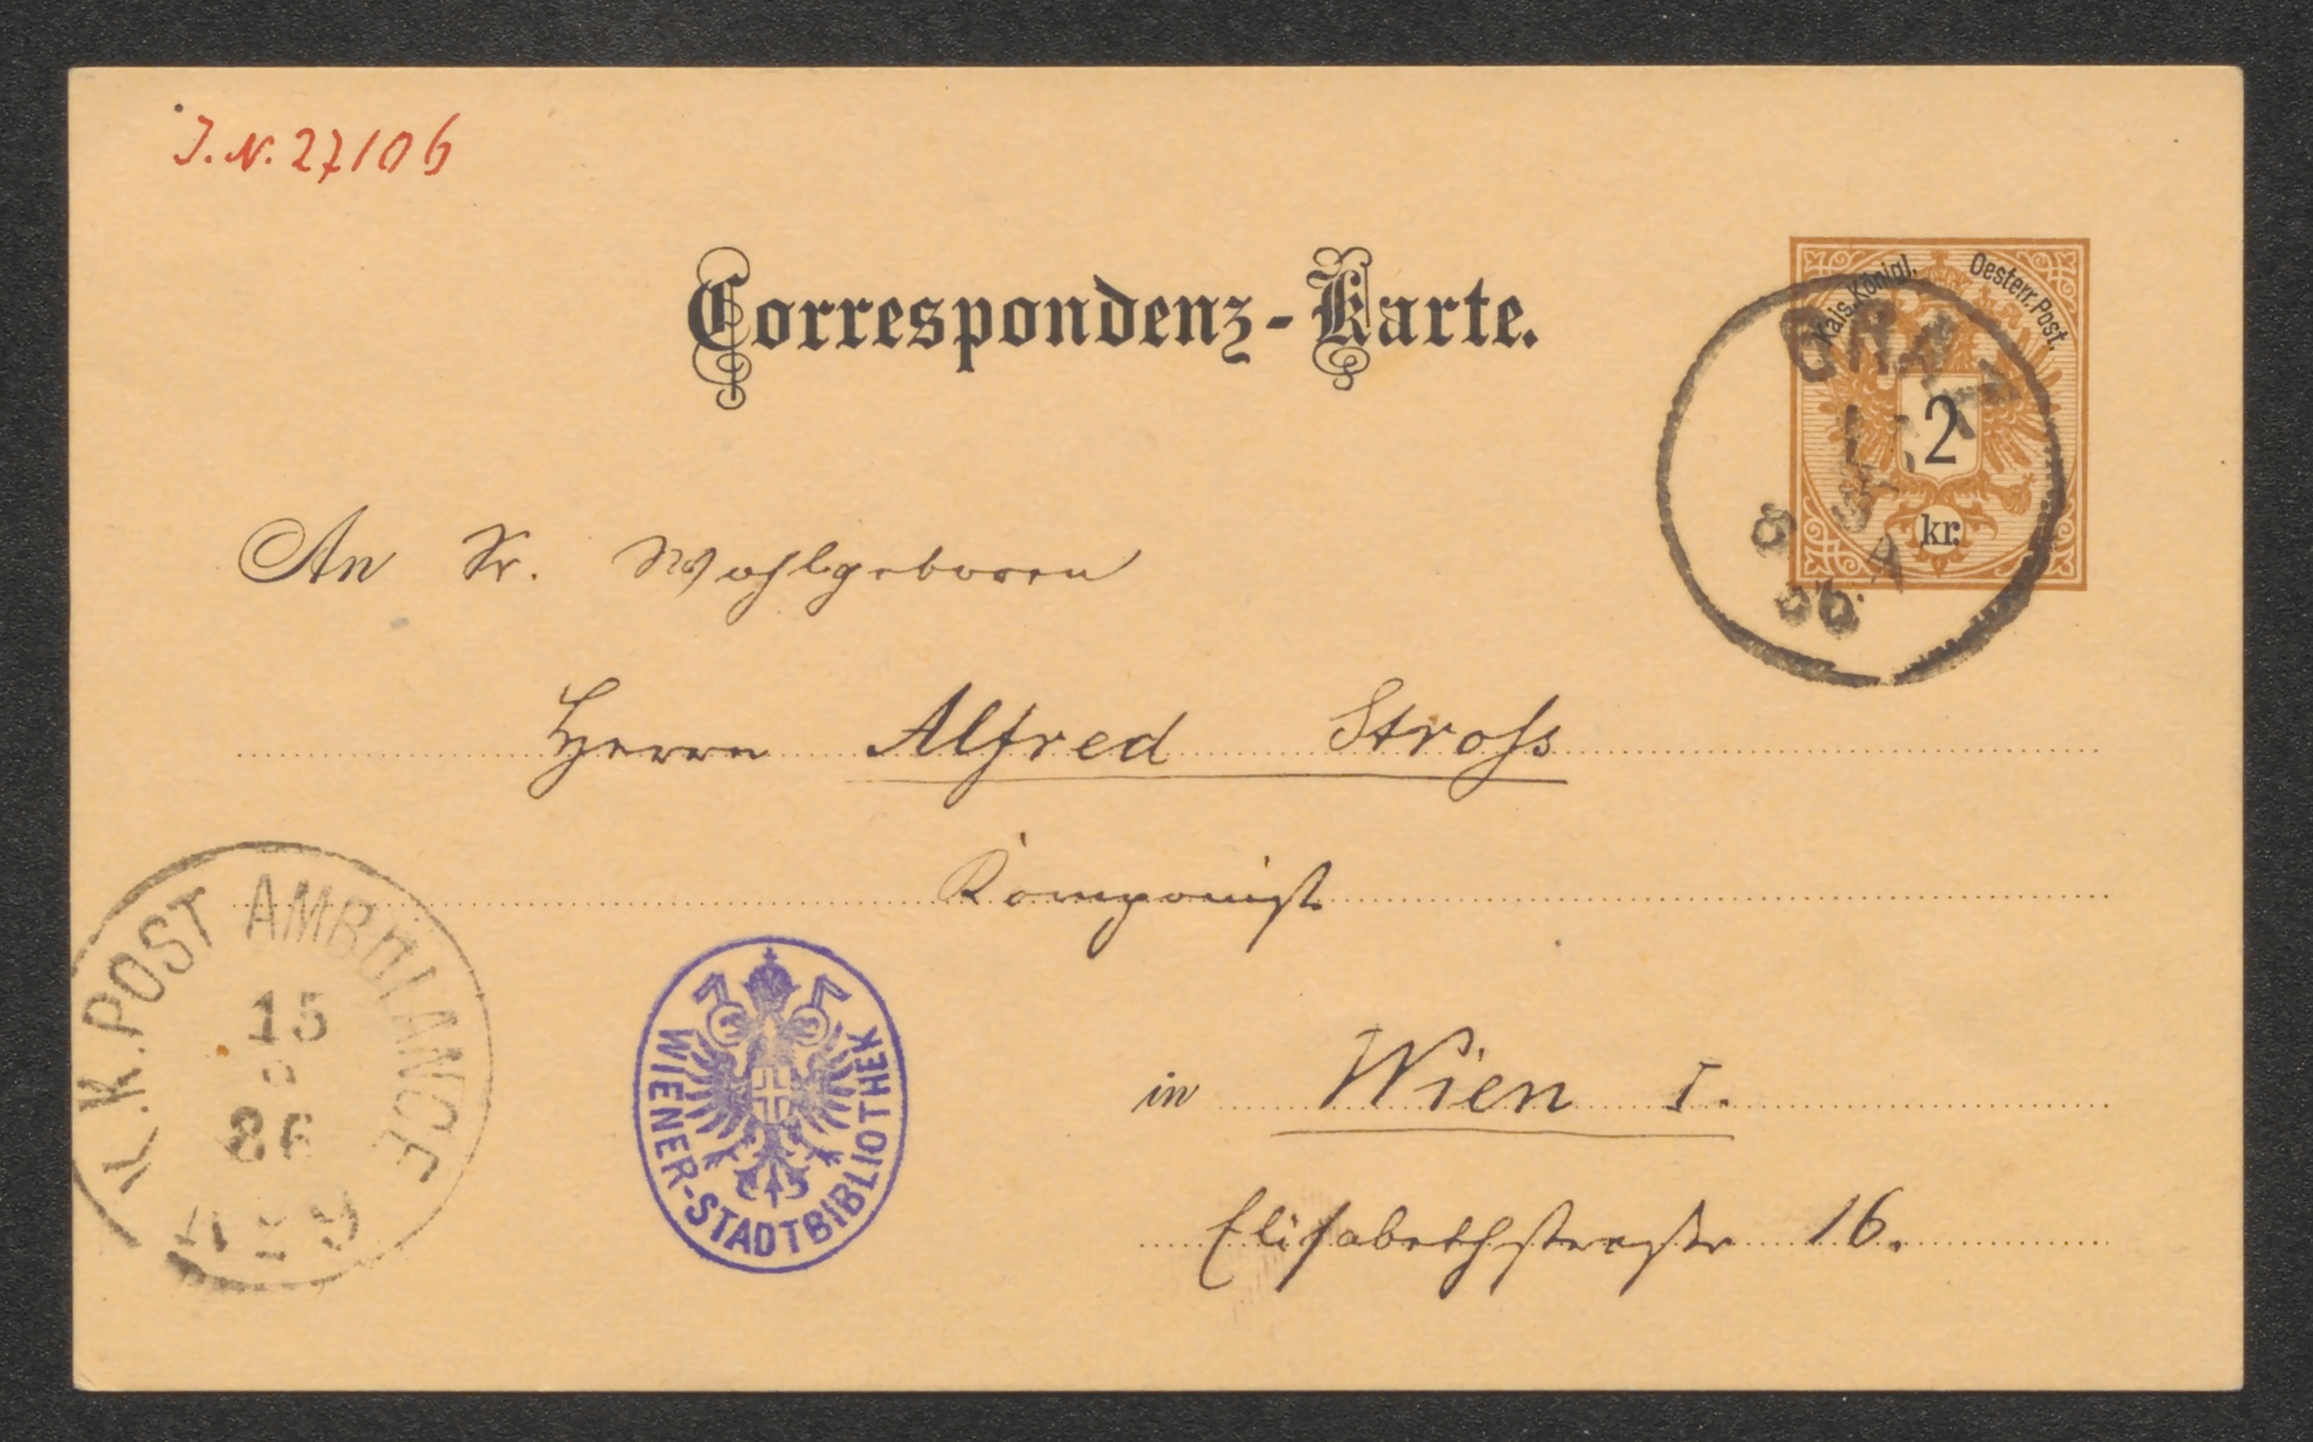 J. N. 27106
Correspondenz-Karte.
Kais. Königl. Oesterr. Post.
2
kr.
GRAZ
8
A
86
An Sr. Wohlgeboren
Herrn Alfred Stross
Komponist
in Wien I.
Elisabethstrasse 16.
K.K. POST AMBULANCE
15
86
WIENER-STADTBIBLIOTHEK